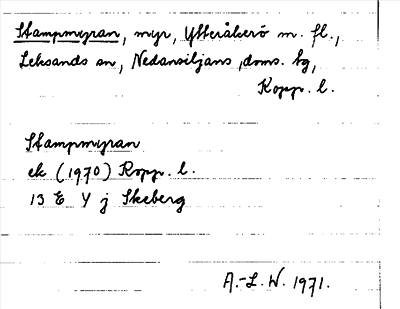 Stampmyran, myr, Ytteråkerö m. fl.,
Leksands sn, Nedansiljans doms. tg,
Kopp. l.
Stampmyran
ek (1970) Kopp. l.
13 E Y j Skeberg
A.-L. W. 1971.